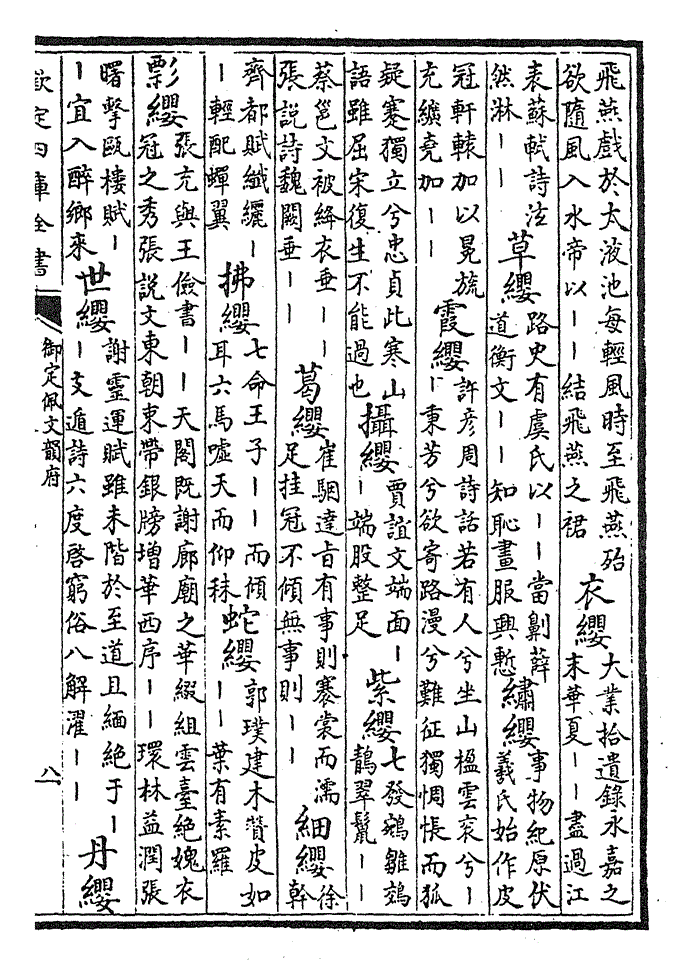 飛燕戲於太液池每輕風時至飛燕殆
欲隨風入水帝以丨丨結飛燕之裙
衣纓
大業拾遺錄永嘉之
末華夏丨丨盡過江
表蘇軾詩泫
然淋丨丨
草纓
路史有虞氏以丨丨當劓薛
道衡文丨丨知恥畫服興慙
繡纓
事物紀原伏
羲氏始作皮
冠軒轅加以冕旒
充纊堯加丨丨
霞纓
許彦周詩話若有人兮坐山楹雲衮兮丨
丨秉芳兮欲寄路漫兮難征獨惆悵而狐
疑蹇獨立兮忠貞此寒山
語雖屈宋復生不能過也
攝纓
賈誼文端面丨
丨端股整足
紫纓
七發鵷雛鵁
鶄翠鬛丨丨
蔡邕文被絳衣垂丨丨
張説詩魏闕垂丨丨
葛纓
崔駰達旨有事則褰裳而濡
足挂冠不傾無事則丨丨
細纓
徐
幹
齊都賦纖纚丨
丨輕配蟬翼
拂纓
七命王子丨丨而傾
耳六馬噓天而仰秣
蛇纓
郭璞建木贊皮如
丨丨葉有素羅
彯纓
張充與王儉書丨丨天閣既謝廊廟之華綴組雲臺絶媿衣
冠之秀張説文東朝束帶銀牓增華西序丨丨環林益潤張
曙擊甌樓賦丨
丨宜入醉鄉來
世纓
謝靈運賦雖未階於至道且緬絶于丨
丨支遁詩六度啓窮俗八解濯丨丨
丹纓
欽定四庫全書
御定佩文韻府
八